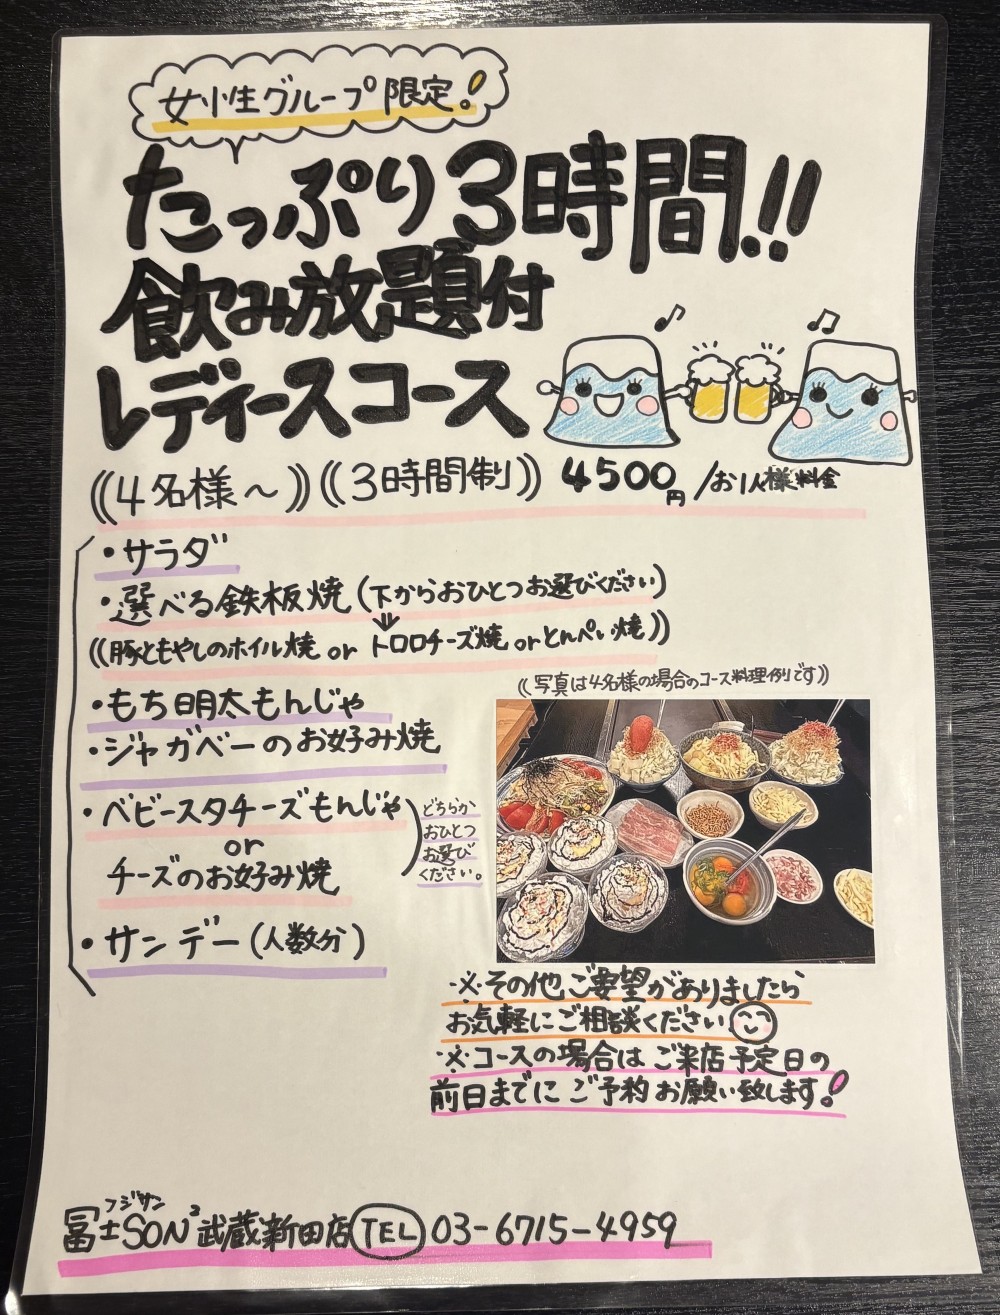 女性グループ限定!
たっぷり3時間!!
飲み放題付
レディースコース
((4名様～)) ((3時間制)) 4500円/お1人様料金
・サラダ
・選べる鉄板焼(下からおひとつお選びください)
((豚ともやしのホイル焼 or トロロチーズ焼 or とんぺい焼))
・もち明太もんじゃ
・ジャガベーのお好み焼
・ベビースタチーズもんじゃ
or
チーズのお好み焼
どちらか
おひとつ
お選び
ください。
・サンデー(人数分)
((写真は4名様の場合のコース料理例です))
※その他ご要望がありましたら
お気軽にご相談ください
※コースの場合はご来店予定日の
前日までにご予約お願い致します!
フジサン
冨士SON² 武蔵新田店 TEL 03-6715-4959